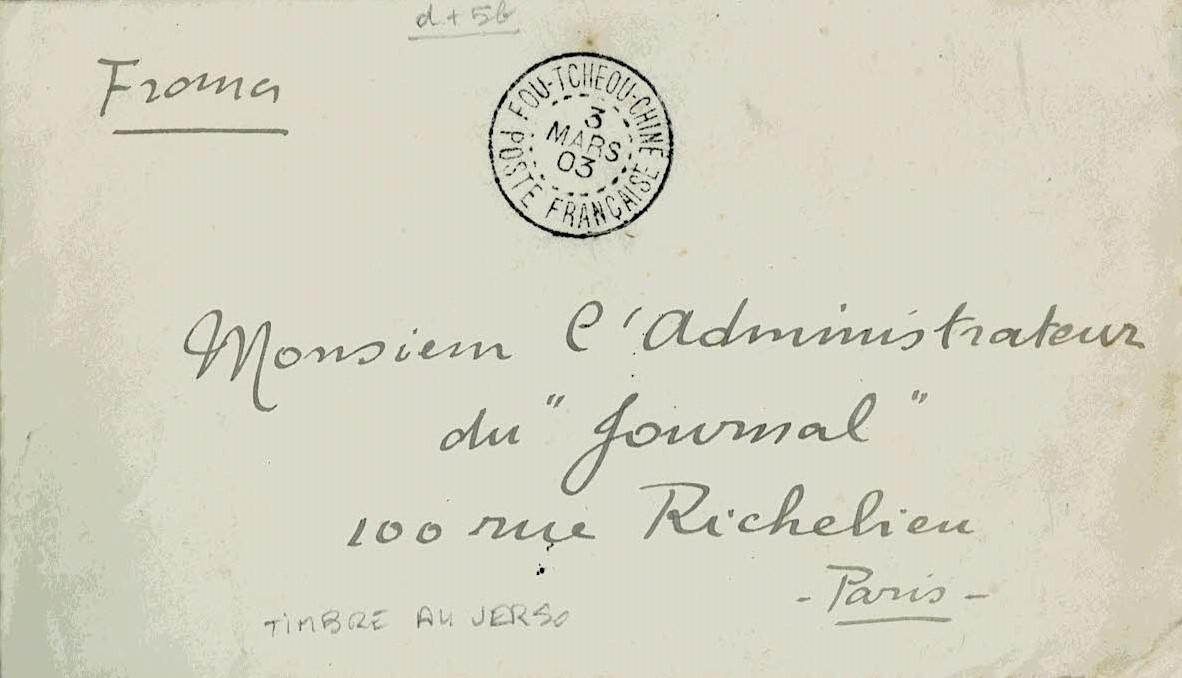 d+5b
Froma
FOU-TCHEOU-CHINE
3
MARS
03
POSTE FRANÇAISE
Monsieur l'Administrateur
du "Journal"
100 rue Richelieu
- Paris -
TIMBRE AU VERSO